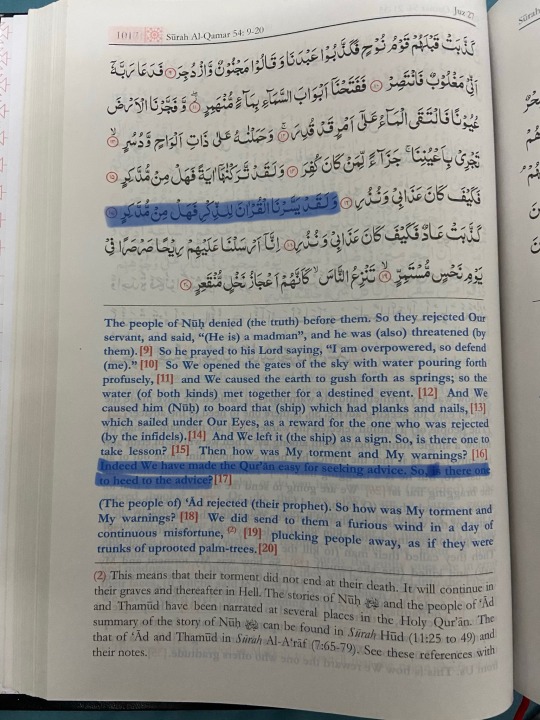 Juz 27
1017 Sūrah Al-Qamar 54: 9-20
كَذَّبَتْ قَبْلَهُمْ قَوْمُ نُوْحٍ فَكَذَّبُوْا عَبْدَنَا وَقَالُوْا مَجْنُوْنٌ وَّازْدُجِرَ ۝۹ فَدَعَا رَبَّهٗٓ
اَنِّيْ مَغْلُوْبٌ فَانْتَصِرْ ۝۱۰ فَفَتَحْنَآ اَبْوَابَ السَّمَآءِ بِمَآءٍ مُّنْهَمِرٍ ۝۱۱ وَّفَجَّرْنَا الْاَرْضَ
عُيُوْنًا فَالْتَقَى الْمَآءُ عَلٰٓى اَمْرٍ قَدْ قُدِرَ ۝۱۲ وَحَمَلْنٰهُ عَلٰى ذَاتِ اَلْوَاحٍ وَّدُسُرٍ ۝۱۳
تَجْرِيْ بِاَعْيُنِنَا ۚ جَزَآءً لِّمَنْ كَانَ كُفِرَ ۝۱۴ وَلَقَدْ تَّرَكْنٰهَآ اٰيَةً فَهَلْ مِنْ مُّدَّكِرٍ ۝۱۵
فَكَيْفَ كَانَ عَذَابِيْ وَنُذُرِ ۝۱۶ وَلَقَدْ يَسَّرْنَا الْقُرْاٰنَ لِلذِّكْرِ فَهَلْ مِنْ مُّدَّكِرٍ ۝۱۷
كَذَّبَتْ عَادٌ فَكَيْفَ كَانَ عَذَابِيْ وَنُذُرِ ۝۱۸ اِنَّآ اَرْسَلْنَا عَلَيْهِمْ رِيْحًا صَرْصَرًا فِيْ
يَوْمِ نَحْسٍ مُّسْتَمِرٍّ ۝۱۹ تَنْزِعُ النَّاسَ ۙ كَاَنَّهُمْ اَعْجَازُ نَخْلٍ مُّنْقَعِرٍ ۝۲۰
The people of Nūḥ denied (the truth) before them. So they rejected Our
servant, and said, “(He is) a madman”, and he was (also) threatened (by
them). [9] So he prayed to his Lord saying, “I am overpowered, so defend
(me).” [10] So We opened the gates of the sky with water pouring forth
profusely, [11] and We caused the earth to gush forth as springs; so the
water (of both kinds) met together for a destined event. [12] And We
caused him (Nūḥ) to board that (ship) which had planks and nails, [13]
which sailed under Our Eyes, as a reward for the one who was rejected
(by the infidels). [14] And We left it (the ship) as a sign. So, is there one to
take lesson? [15] Then how was My torment and My warnings? [16]
Indeed We have made the Qur’ān easy for seeking advice. So, is there one
to heed to the advice? [17]
(The people of) ‘Ād rejected (their prophet). So how was My torment and
My warning? [18] We did send to them a furious wind in a day of
continuous misfortune, (2) [19] plucking people away, as if they were
trunks of uprooted palm-trees. [20]
(2) This means that their torment did not end at their death. It will continue in
their graves and thereafter in Hell. The stories of Nūḥ and the people of ‘Ād
and Thamūd have been narrated at several places in the Holy Qur’ān. The
summary of the story of Nūḥ can be found in Sūrah Hūd (11:25 to 49) and
that of ‘Ād and Thamūd in Sūrah Al-A‘rāf (7:65-79). See these references with
their notes.